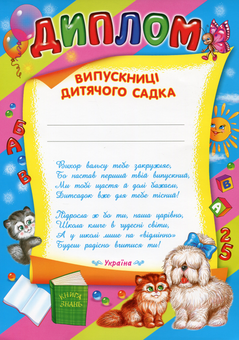 ДИПЛОМ
ВИПУСКНИЦІ
ДИТЯЧОГО САДКА
Вихор вальсу тебе закружляє,
Бо настав перший твій випускний,
Ми тобі щастя й долі бажаєм,
Дитсадок вже для тебе тісний!
Підросла ж бо ти, наша царівно,
Школа кличе в чудесні світи,
А у школі лише на «відмінно»
Будеш радісно вчитися ти!
Україна
А
Б
В
В
А
2
5
КНИГА
ЗНАНЬ